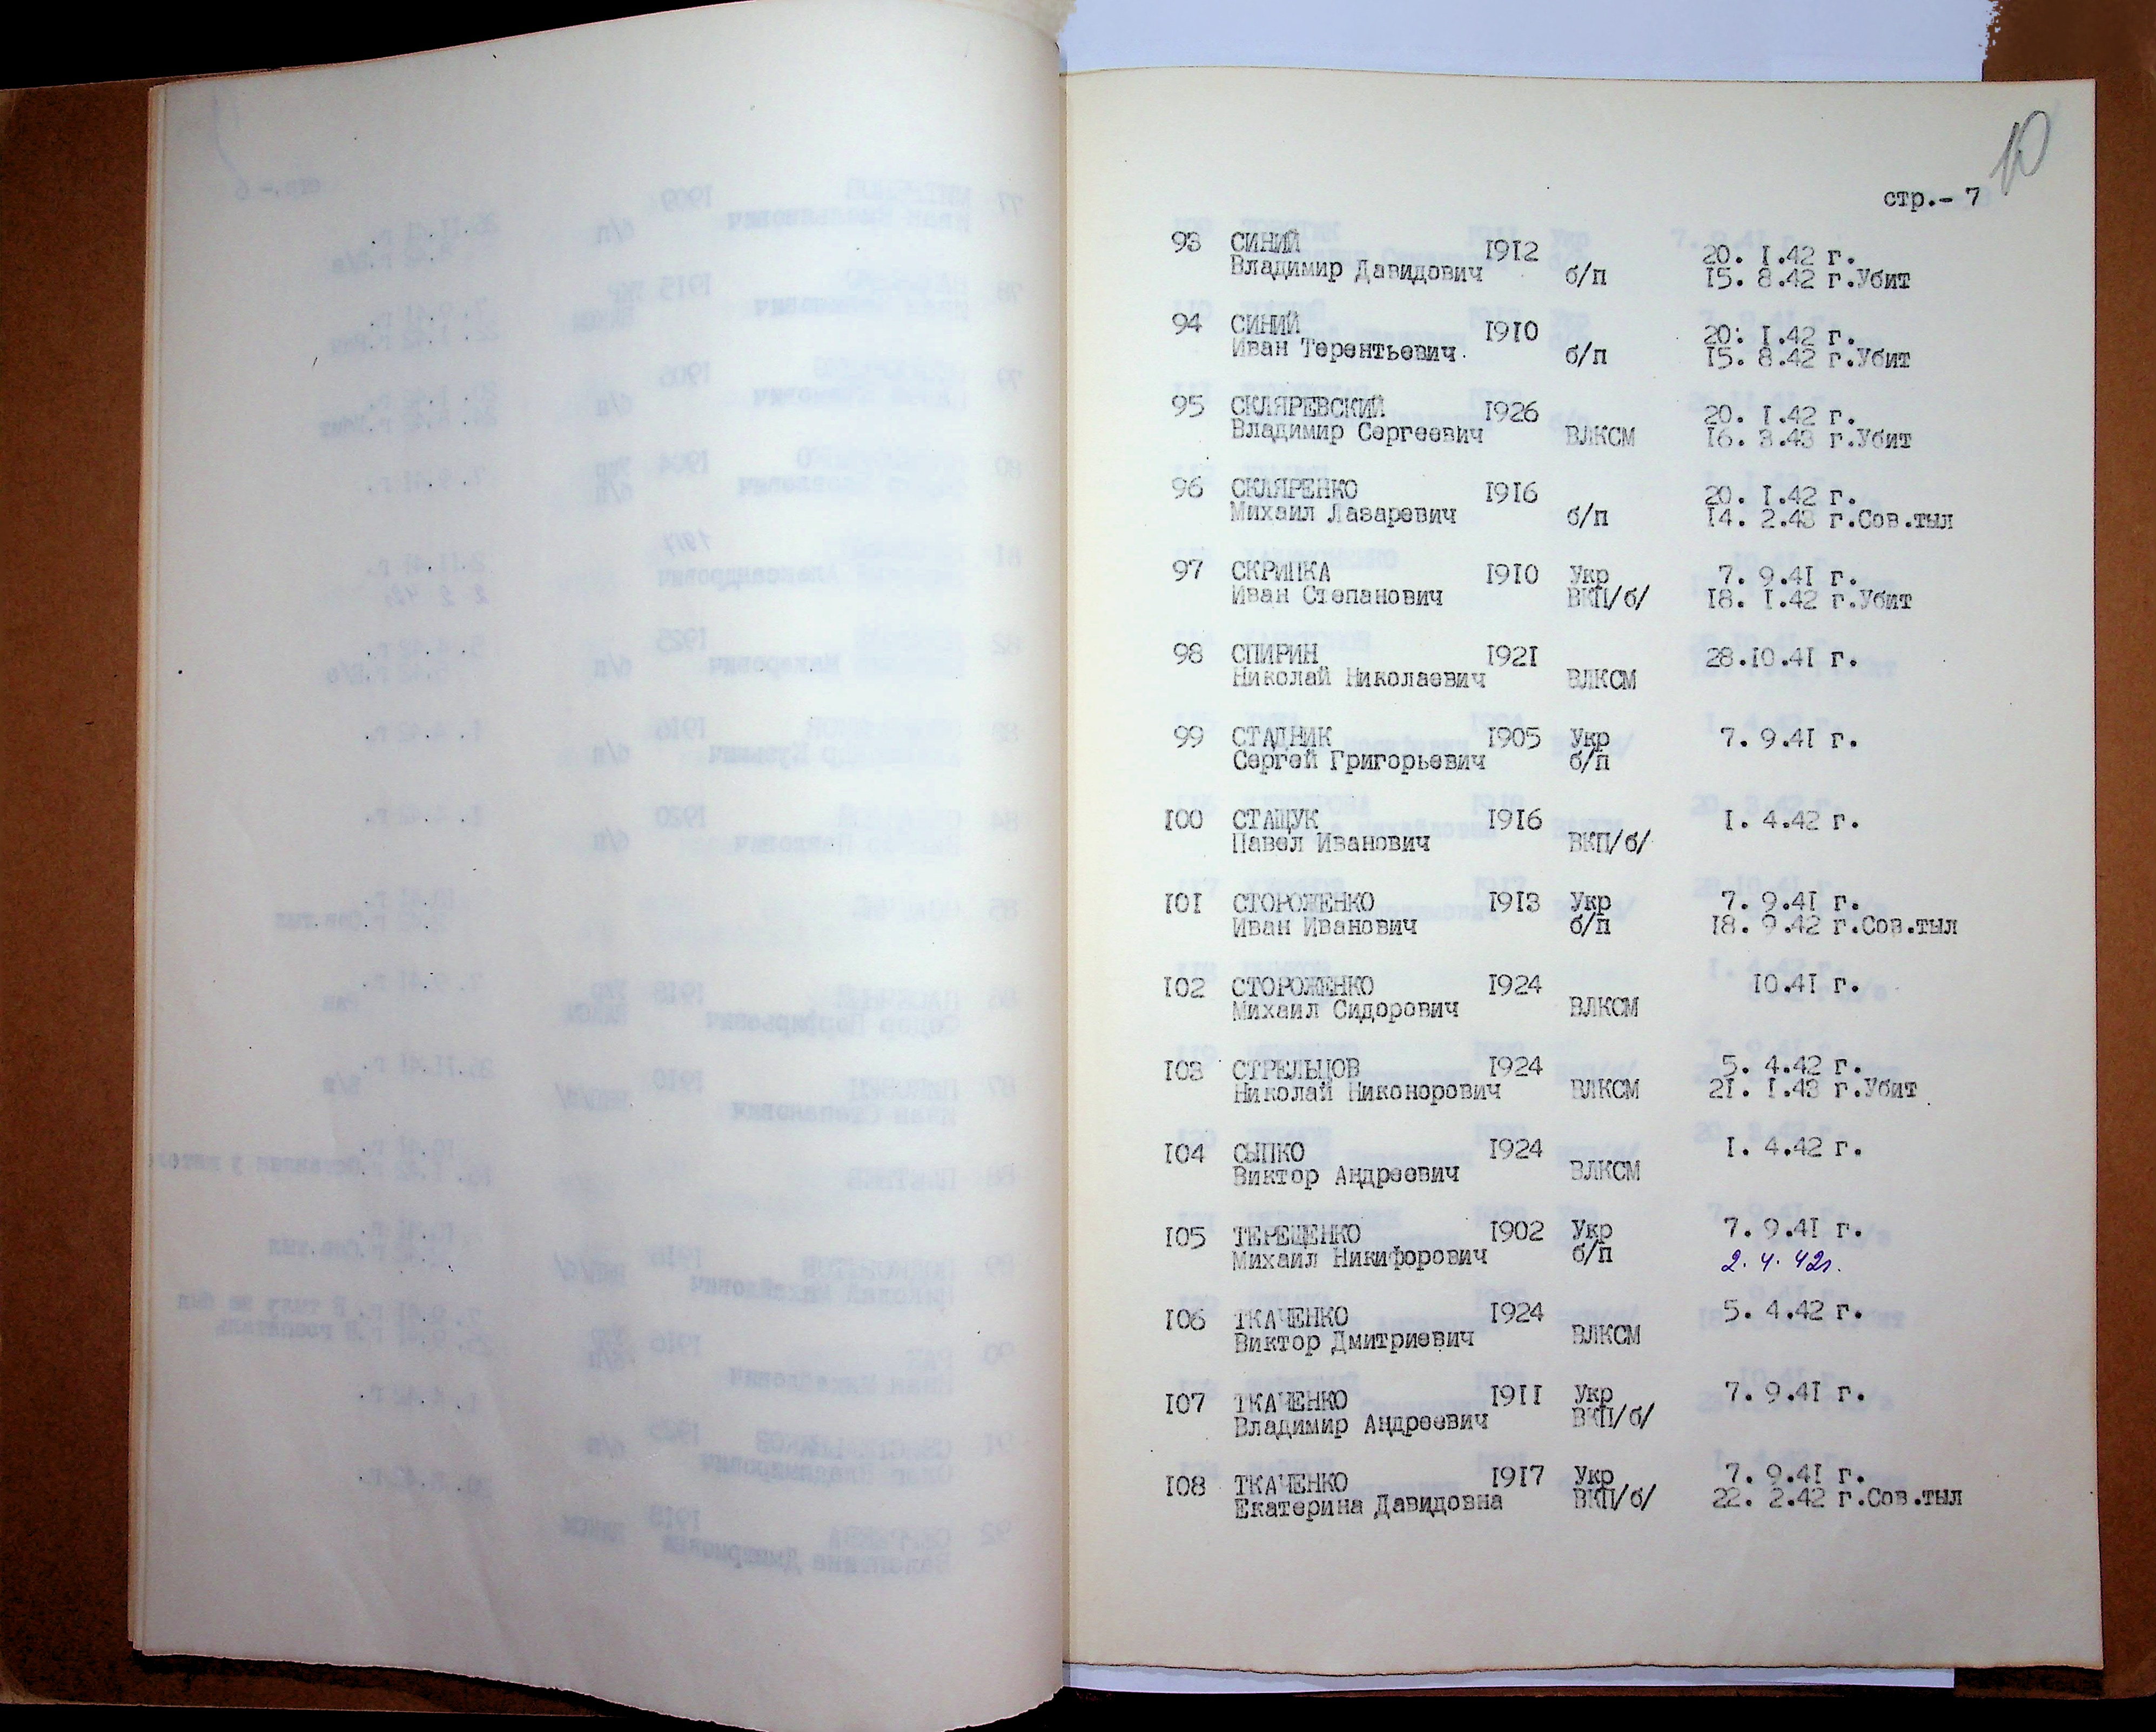 10
стр.- 7
93 СИНИЙ 1912 20. I.42 г.
Владимир Давидович б/п 15. 8.42 г.Убит
94 СИНИЙ 1910 20. I.42 г.
Иван Терентьевич б/п 15. 8.42 г.Убит
95 СКЛЯРЕВСКИЙ 1926 20. I.42 г.
Владимир Сергеевич ВЛКСМ 16. 3.43 г.Убит
96 СКЛЯРЕНКО 1916 20. I.42 г.
Михаил Лазаревич б/п 14. 2.43 г.Сов.тыл
97 СКРИПКА 1910 Укр 7. 9.41 г.
Иван Степанович ВКП/б/ 18. I.42 г.Убит
98 СПИРИН 1921 28.10.41 г.
Николай Николаевич ВЛКСМ
99 СТАДНИК 1905 Укр 7. 9.41 г.
Сергей Григорьевич б/п
100 СТАЩУК 1916 I. 4.42 г.
Павел Иванович ВКП/б/
101 СТОРОЖЕНКО 1913 Укр 7. 9.41 г.
Иван Иванович б/п 18. 9.42 г.Сов.тыл
102 СТОРОЖЕНКО 1924 10.41 г.
Михаил Сидорович ВЛКСМ
103 СТРЕЛЬЦОВ 1924 5. 4.42 г.
Николай Никонорович ВЛКСМ 21. I.43 г.Убит
104 СЫПКО 1924 I. 4.42 г.
Виктор Андреевич ВЛКСМ
105 ТЕРЕЩЕНКО 1902 Укр 7. 9.41 г.
Михаил Никифорович б/п 2. 4. 42г.
106 ТКАЧЕНКО 1924 5. 4.42 г.
Виктор Дмитриевич ВЛКСМ
107 ТКАЧЕНКО 1911 Укр 7. 9.41 г.
Владимир Андреевич ВКП/б/
108 ТКАЧЕНКО 1917 Укр 7. 9.41 г.
Екатерина Давидовна ВКП/б/ 22. 2.42 г.Сов.тыл